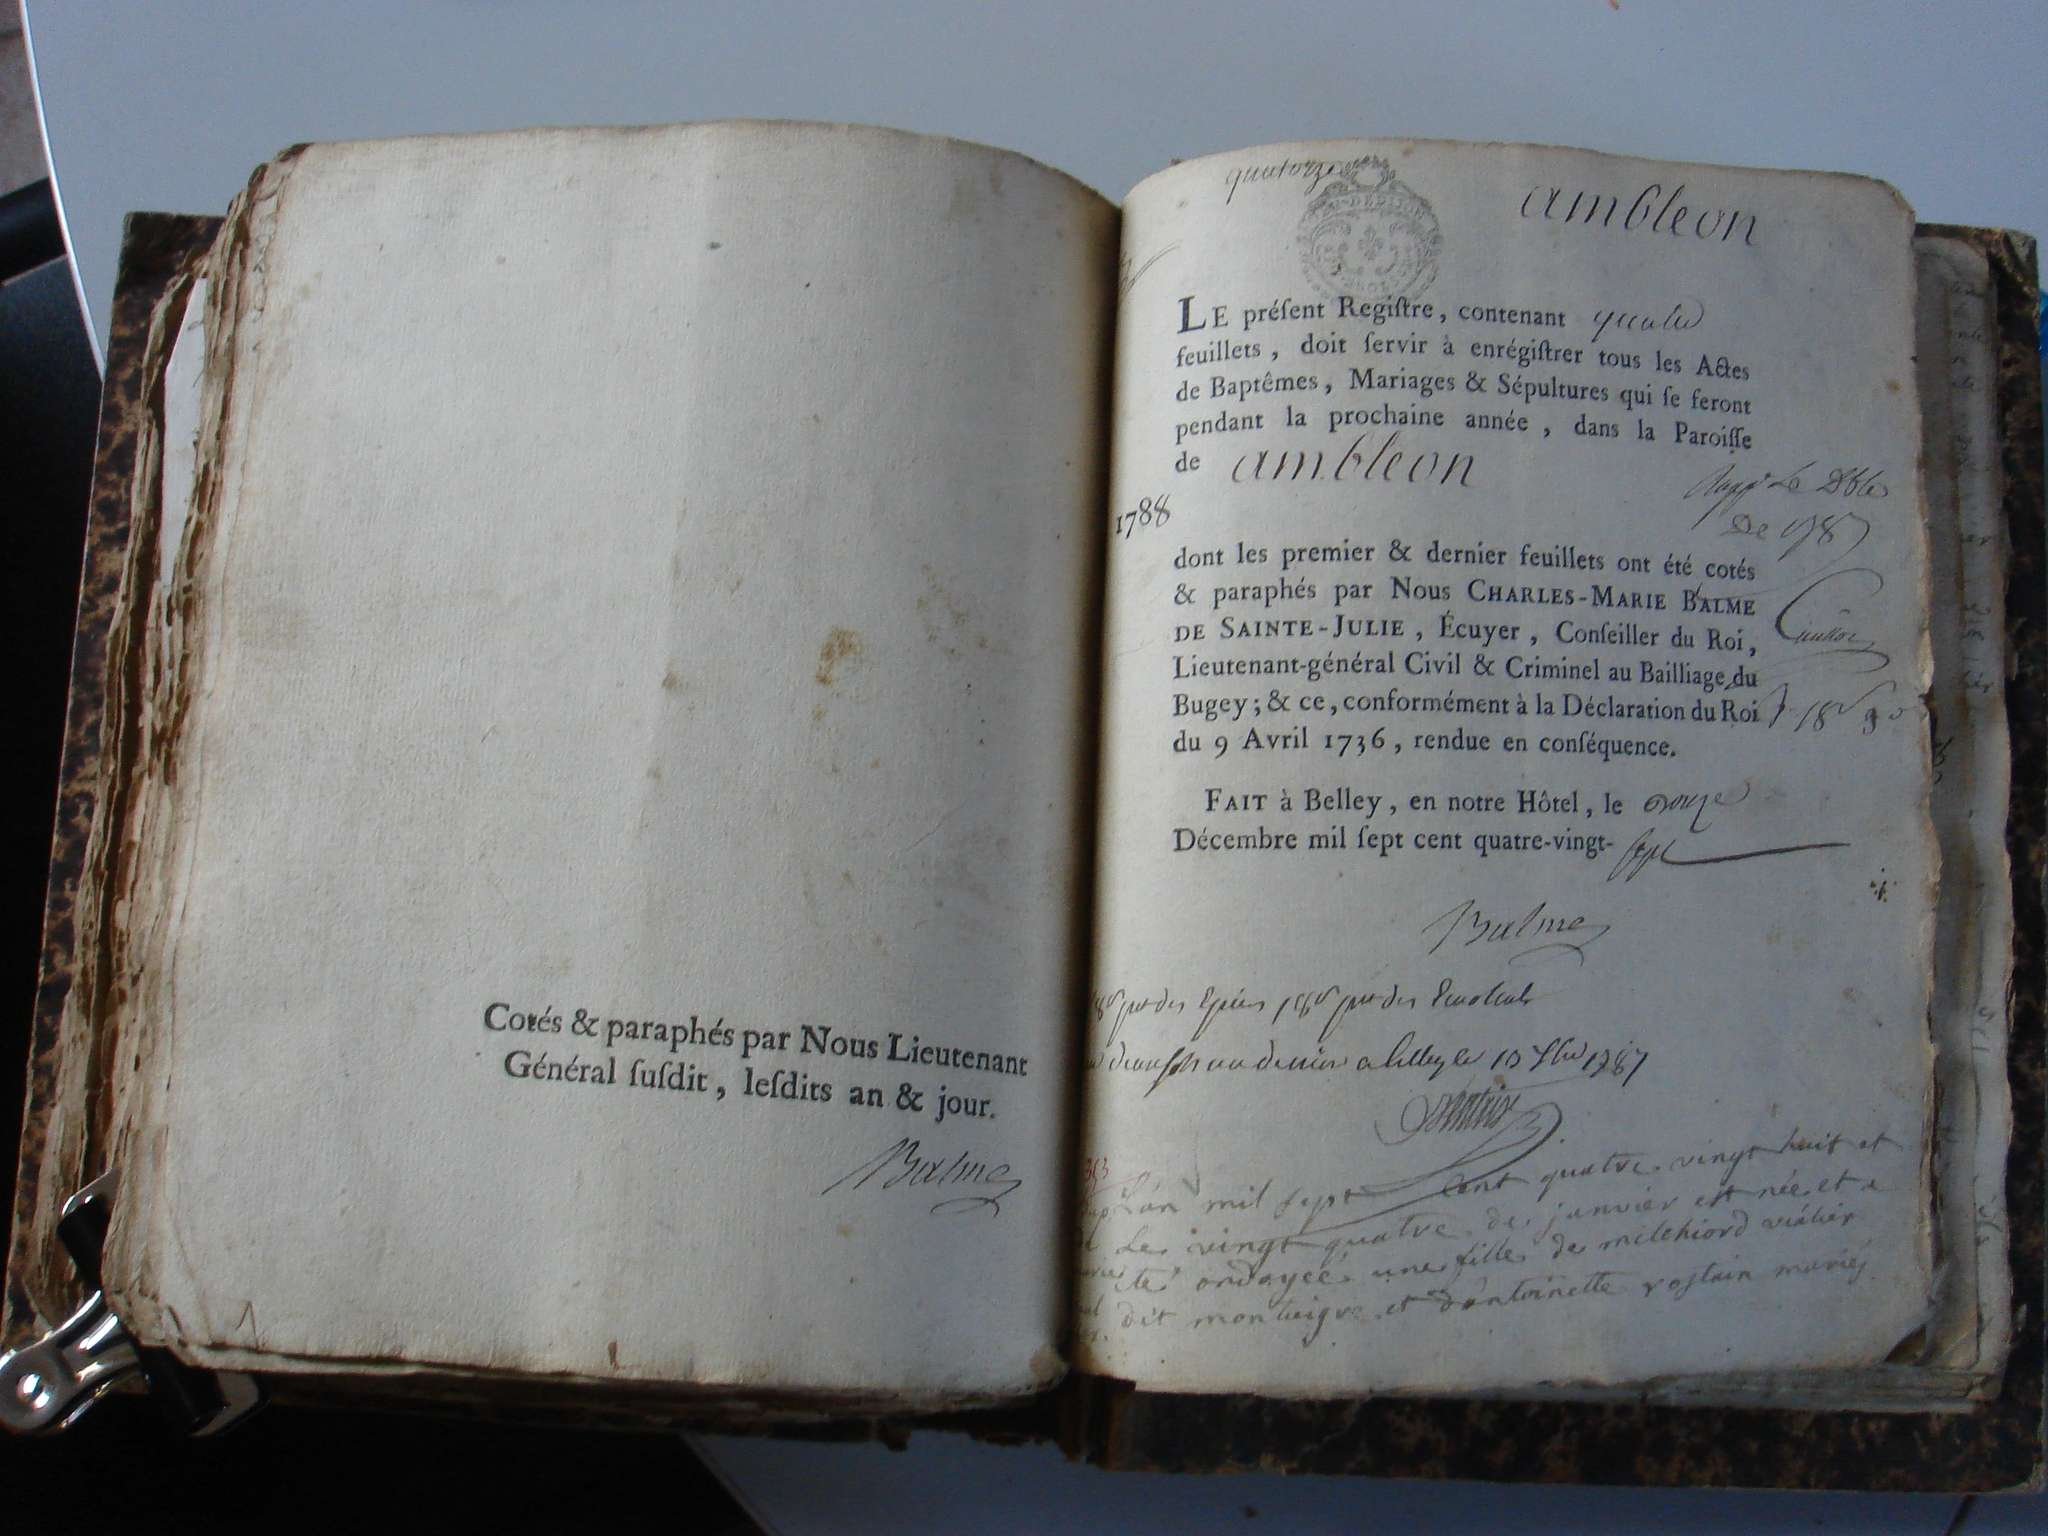 Cotés & paraphés par Nous Lieutenant
Général ſuſdit, leſdits an & jour.
Balme
quatorze
ambleon
LE préſent Regiſtre, contenant quatre
feuillets, doit ſervir à enrégiſtrer tous les Actes
de Baptêmes, Mariages & Sépultures qui ſe feront
pendant la prochaine année, dans la Paroiſſe
de ambleon
1788
De 1787
dont les premier & dernier feuillets ont été cotés
& paraphés par Nous CHARLES-MARIE BALME
DE SAINTE-JULIE, Écuyer, Conſeiller du Roi,
Lieutenant-général Civil & Criminel au Bailliage du
Bugey; & ce, conformément à la Déclaration du Roi
du 9 Avril 1736, rendue en conſéquence.
FAIT à Belley, en notre Hôtel, le onze
Décembre mil ſept cent quatre-vingt-ſept
Balme
a belley le 1787
l'an mil sept cent quatre vingt huit et
le vingt quatre de janvier est née et a
été ondoyée une fille de milchiord
dit et d'antoinette roſtain mariés